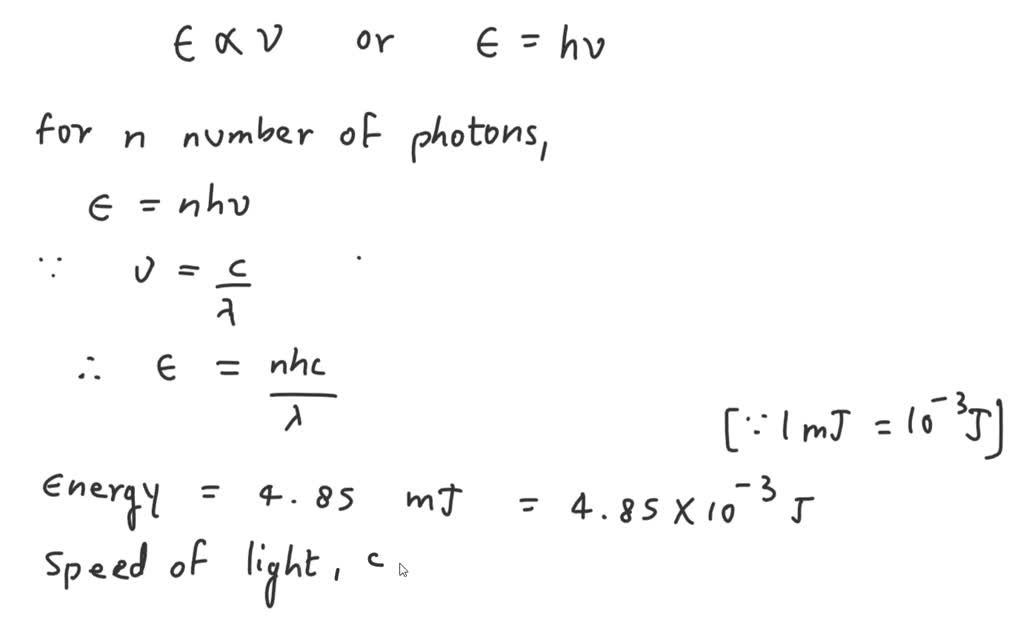 ϵ ∝ ν or ϵ = hν
for n number of photons,
ϵ = nhν
∵ ν = c/λ
∴ ϵ = nhc/λ
[∵ 1 mJ = 10⁻³J]
Energy = 4.85 mJ = 4.85 × 10⁻³ J
Speed of light, c